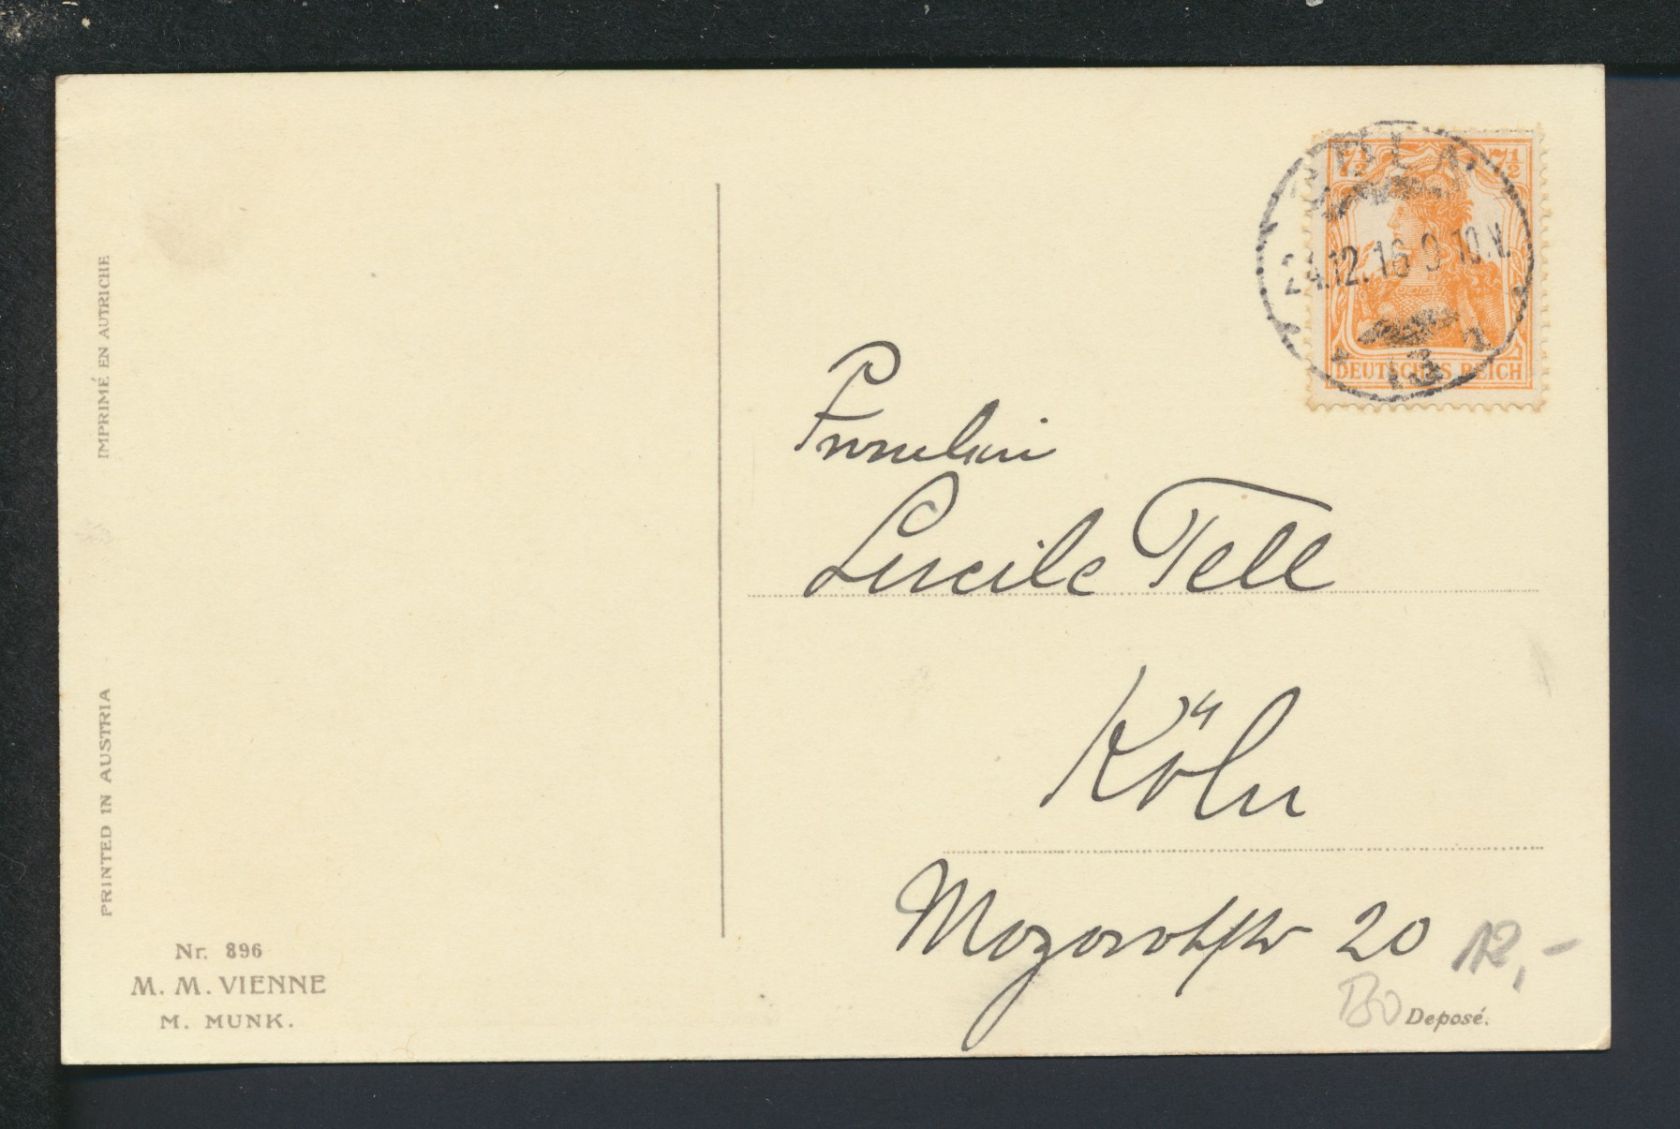 IMPRIMÉ EN AUTRICHE
PRINTED IN AUSTRIA
Nr. 896
M. M. VIENNE
M. MUNK.
7½ 7½
24.12.16 9-10 N.
DEUTSCHES REICH
Fräulein
Lucile Tell
Köln
Mozartstr 20
12,-
Deposé.